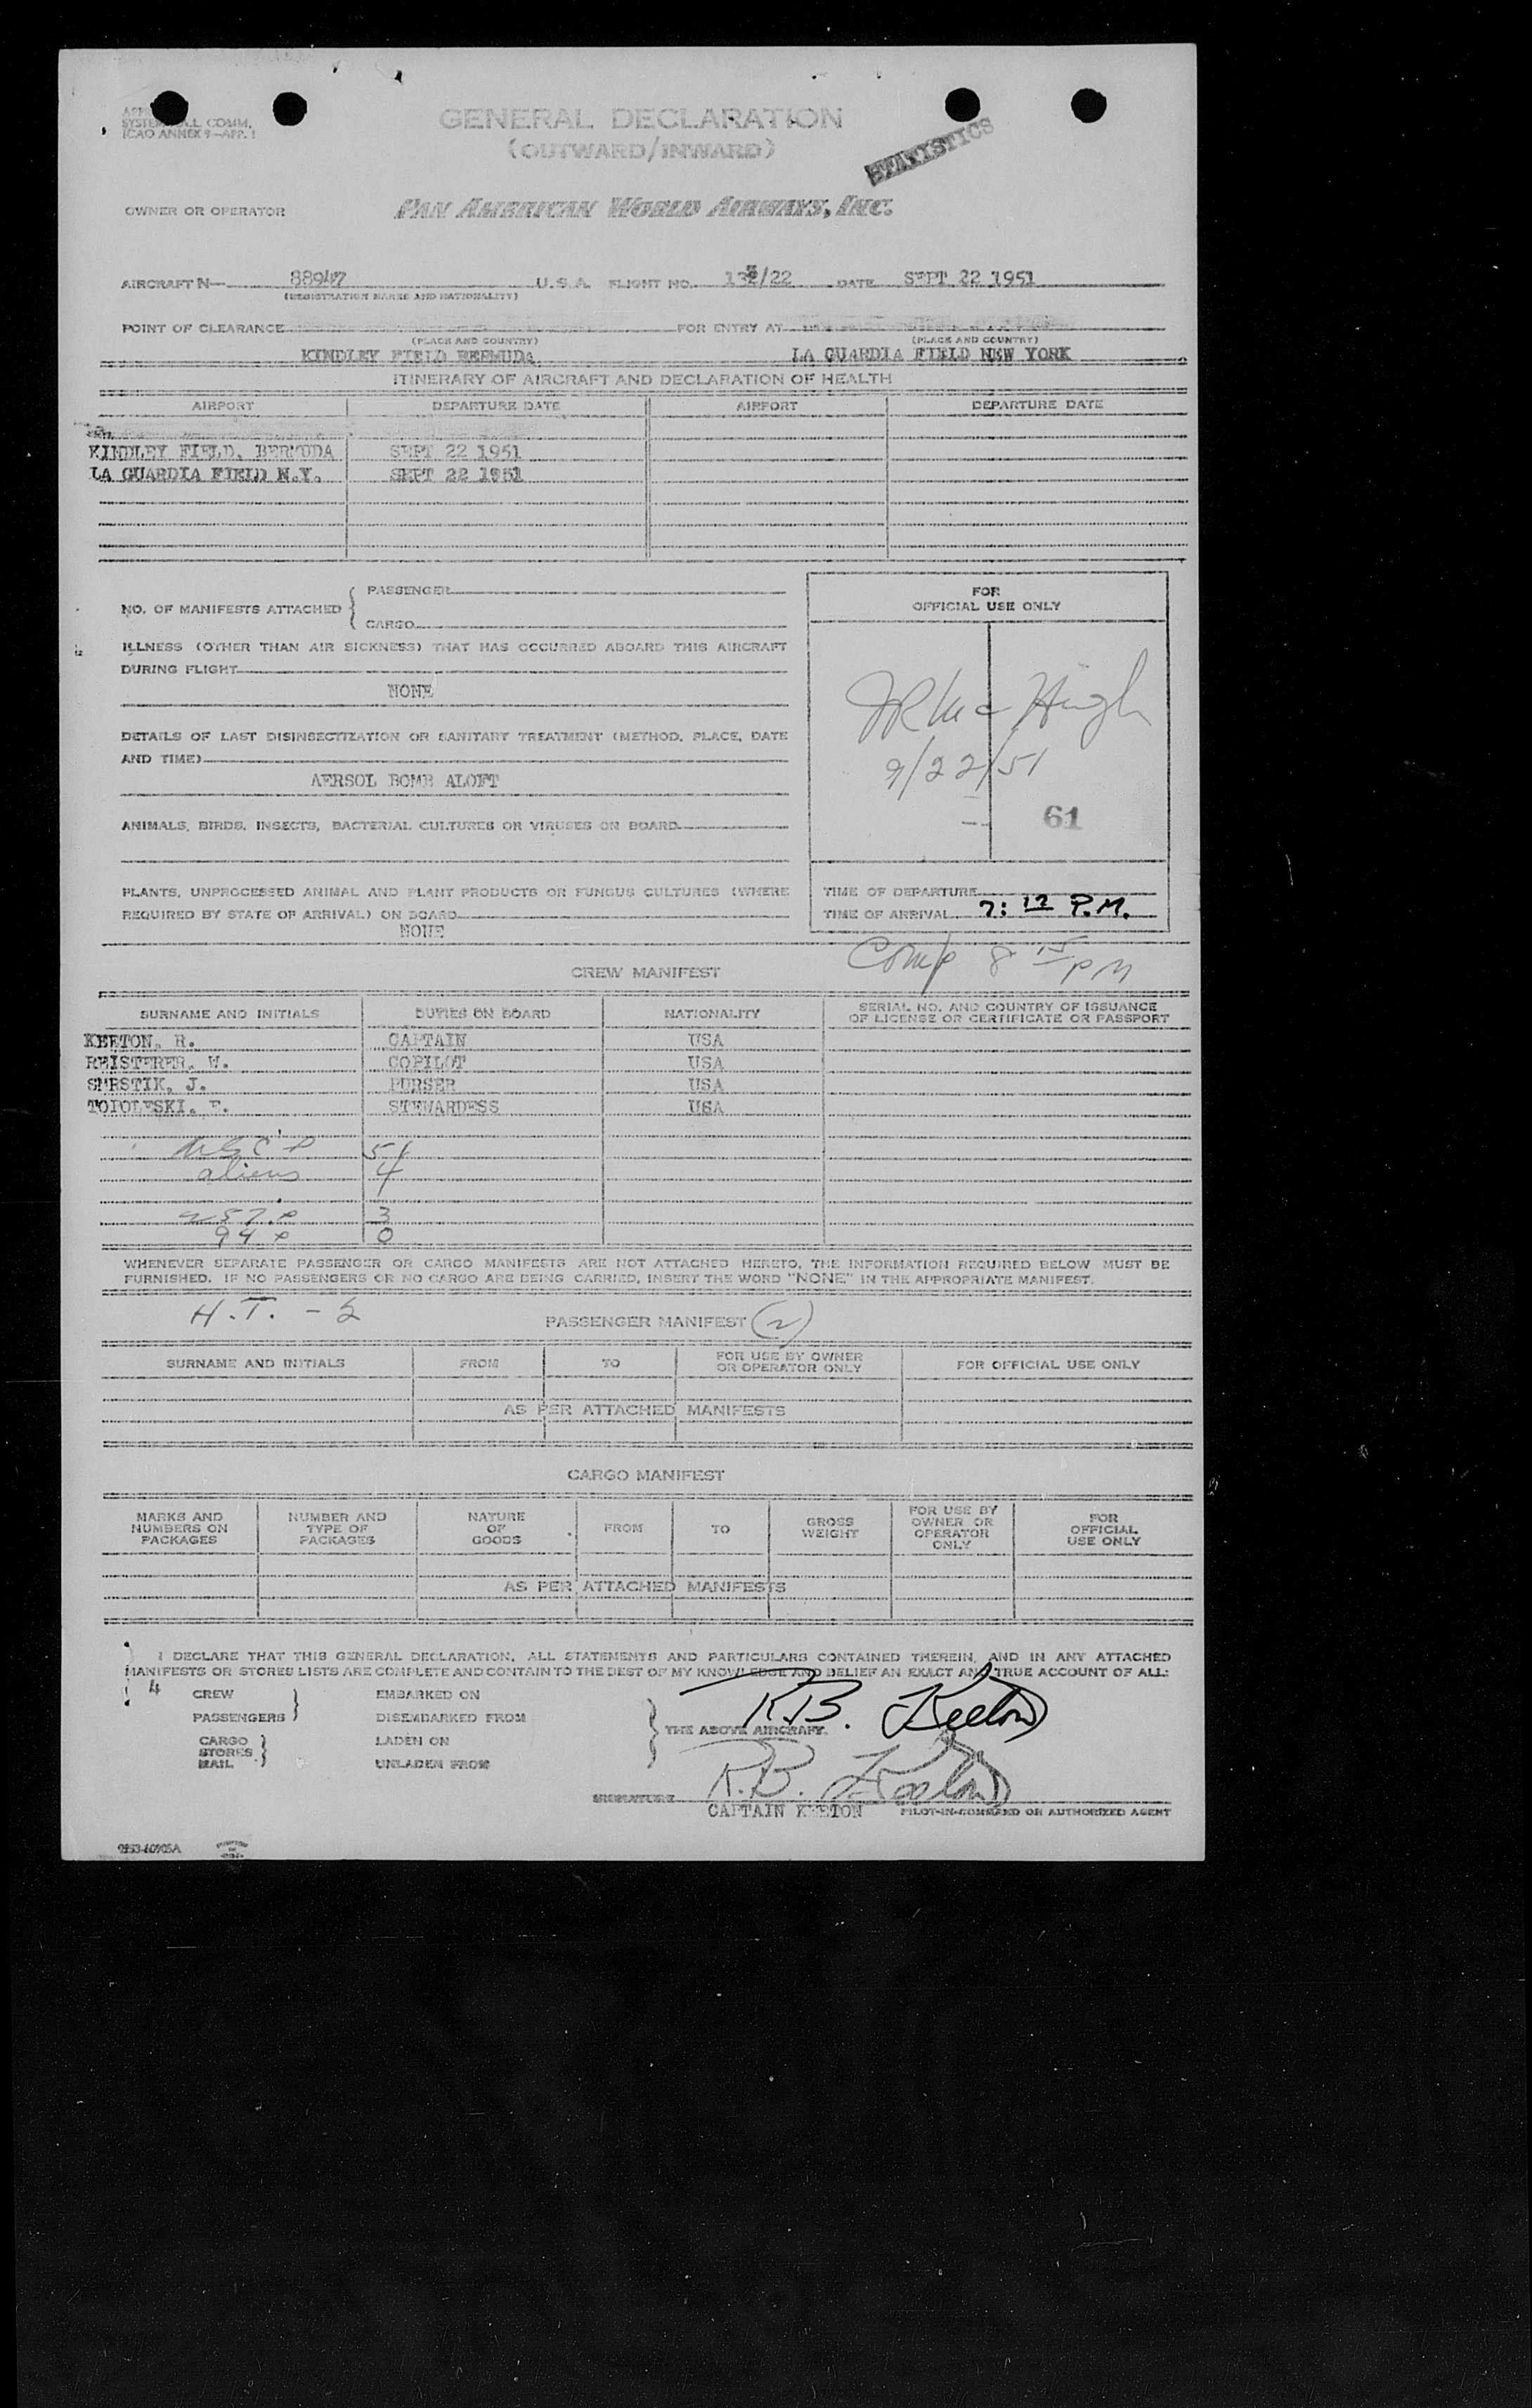 SYSTEM ALL. COMM.
ICAO ANNEX 9—APP. 1
GENERAL DECLARATION
(OUTWARD/INWARD)
STATISTICS
OWNER OR OPERATOR PAN AMERICAN WORLD AIRWAYS, INC.
AIRCRAFT N— 88947 U.S.A. FLIGHT NO. /22 DATE SEPT 22 1951
(REGISTRATION MARKS AND NATIONALITY)
POINT OF CLEARANCE FOR ENTRY AT
(PLACE AND COUNTRY) (PLACE AND COUNTRY)
KINDLEY FIELD BERMUDA LA GUARDIA FIELD NEW YORK
ITINERARY OF AIRCRAFT AND DECLARATION OF HEALTH
AIRPORT DEPARTURE DATE AIRPORT DEPARTURE DATE
KINDLEY FIELD, BERMUDA SEPT 22 1951
LA GUARDIA FIELD N.Y. SEPT 22 1951
NO. OF MANIFESTS ATTACHED { PASSENGER
CARGO
FOR
OFFICIAL USE ONLY
ILLNESS (OTHER THAN AIR SICKNESS) THAT HAS OCCURRED ABOARD THIS AIRCRAFT
DURING FLIGHT
NONE
DETAILS OF LAST DISINSECTIZATION OR SANITARY TREATMENT (METHOD, PLACE, DATE
AND TIME)
AERSOL BOMB ALOFT
9/22/51
61
ANIMALS, BIRDS, INSECTS, BACTERIAL CULTURES OR VIRUSES ON BOARD
PLANTS, UNPROCESSED ANIMAL AND PLANT PRODUCTS OR FUNGUS CULTURES (WHERE
REQUIRED BY STATE OF ARRIVAL) ON BOARD
NONE
TIME OF DEPARTURE
TIME OF ARRIVAL 7:12 P.M.
Comp 8 15 PM
CREW MANIFEST
SURNAME AND INITIALS DUTIES ON BOARD NATIONALITY SERIAL NO. AND COUNTRY OF ISSUANCE
OF LICENSE OR CERTIFICATE OR PASSPORT
KEETON, R. CAPTAIN USA
REISTERER, W. COPILOT USA
SHESTIK, J. PURSER USA
TOPOLESKI, E. STEWARDESS USA
51
aliens 4
3
0
WHENEVER SEPARATE PASSENGER OR CARGO MANIFESTS ARE NOT ATTACHED HERETO, THE INFORMATION REQUIRED BELOW MUST BE
FURNISHED. IF NO PASSENGERS OR NO CARGO ARE BEING CARRIED, INSERT THE WORD "NONE" IN THE APPROPRIATE MANIFEST.
H.T. -
PASSENGER MANIFEST (2)
SURNAME AND INITIALS FROM TO FOR USE BY OWNER
OR OPERATOR ONLY FOR OFFICIAL USE ONLY
AS PER ATTACHED MANIFESTS
CARGO MANIFEST
MARKS AND
NUMBERS ON
PACKAGES NUMBER AND
TYPE OF
PACKAGES NATURE
OF
GOODS FROM TO GROSS
WEIGHT FOR USE BY
OWNER OR
OPERATOR
ONLY FOR
OFFICIAL
USE ONLY
AS PER ATTACHED MANIFESTS
I DECLARE THAT THIS GENERAL DECLARATION, ALL STATEMENTS AND PARTICULARS CONTAINED THEREIN, AND IN ANY ATTACHED
MANIFESTS OR STORES LISTS ARE COMPLETE AND CONTAIN TO THE BEST OF MY KNOWLEDGE AND BELIEF AN EXACT AND TRUE ACCOUNT OF ALL:
4 CREW EMBARKED ON
PASSENGERS DISEMBARKED FROM
CARGO LADEN ON
STORES
MAIL UNLADEN FROM
THE ABOVE AIRCRAFT.
R.B. Keeton
R.B. Keeton
SIGNATURE
CAPTAIN KEETON PILOT-IN-COMMAND OR AUTHORIZED AGENT